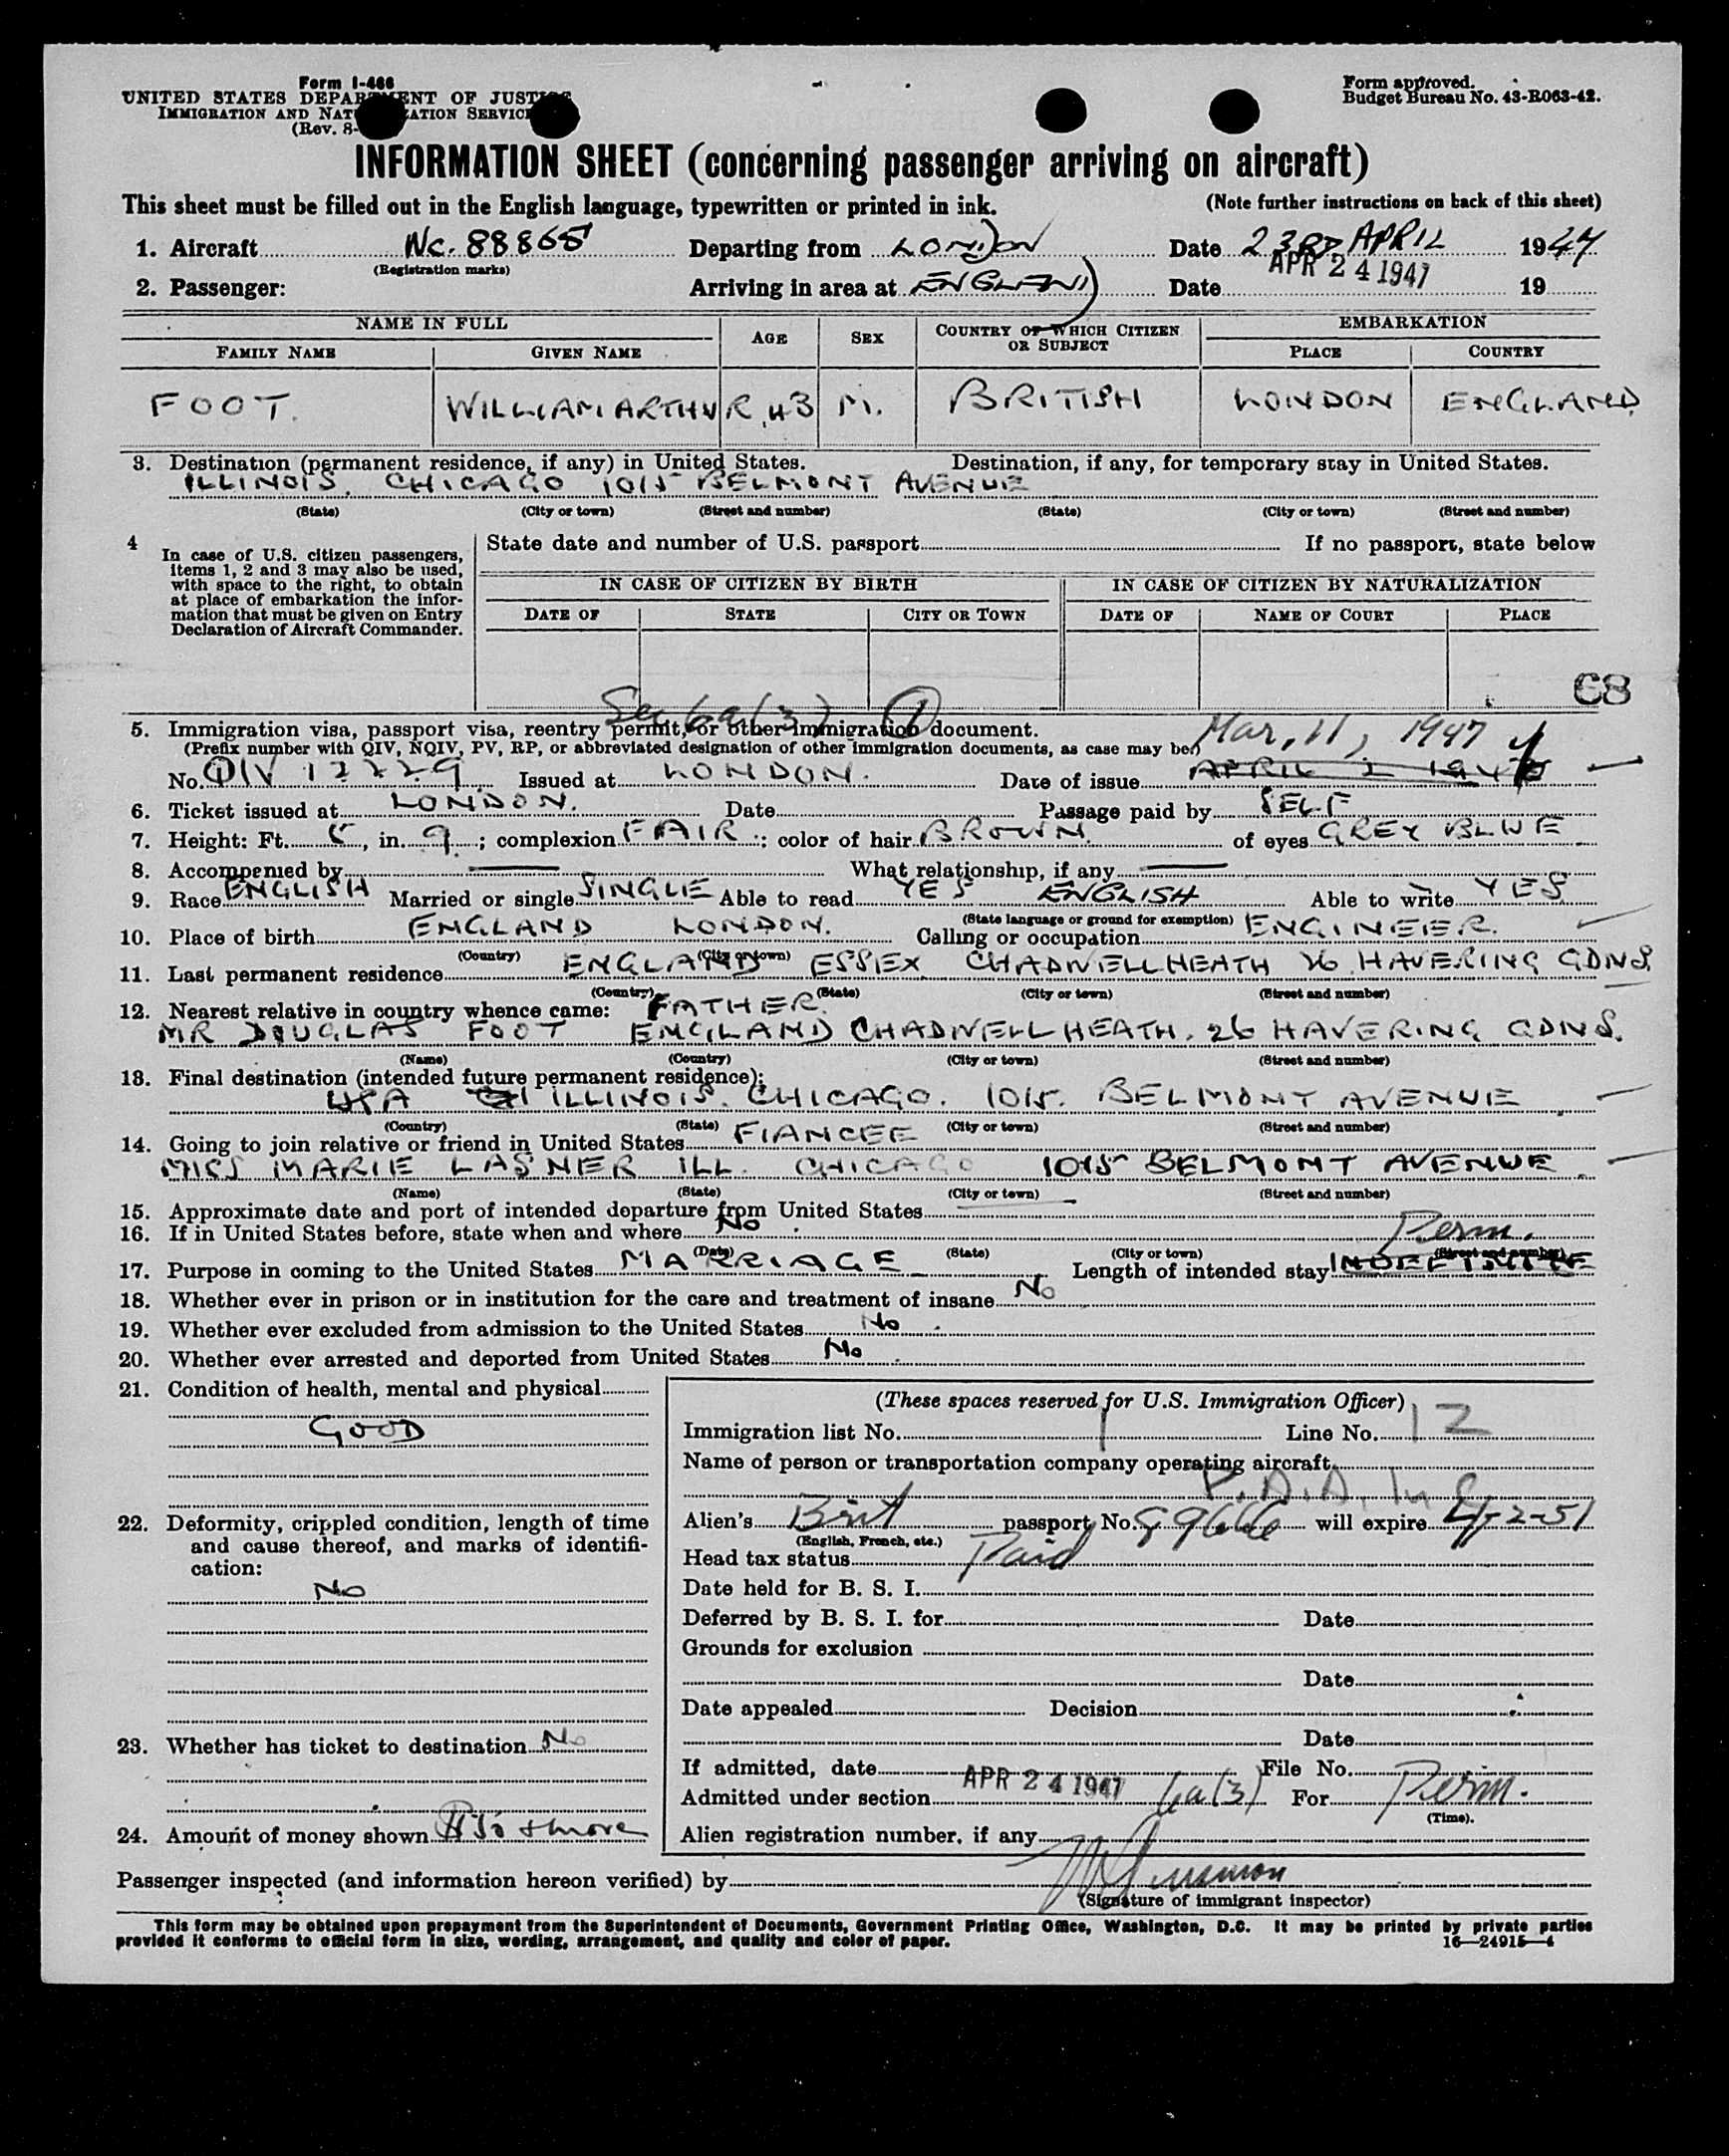 Form I-466
UNITED STATES DEPARTMENT OF JUSTICE
IMMIGRATION AND NATURALIZATION SERVICE
(Rev. 8-
Form approved.
Budget Bureau No. 43-R063-42.
INFORMATION SHEET (concerning passenger arriving on aircraft)
This sheet must be filled out in the English language, typewritten or printed in ink. (Note further instructions on back of this sheet)
1. Aircraft NC. 88865 Departing from LONDON Date 23RD APRIL 1947
(Registration marks) APR 24 1947
2. Passenger: Arriving in area at ENGLAND Date 19
NAME IN FULL AGE SEX COUNTRY OF WHICH CITIZEN OR SUBJECT EMBARKATION
FAMILY NAME GIVEN NAME PLACE COUNTRY
FOOT. WILLIAM ARTHUR 43 M. BRITISH LONDON ENGLAND
3. Destination (permanent residence, if any) in United States. Destination, if any, for temporary stay in United States.
ILLINOIS. CHICAGO 1015 BELMONT AVENUE
(State) (City or town) (Street and number) (State) (City or town) (Street and number)
4 In case of U.S. citizen passengers, items 1, 2 and 3 may also be used, with space to the right, to obtain at place of embarkation the information that must be given on Entry Declaration of Aircraft Commander.
State date and number of U.S. passport If no passport, state below
IN CASE OF CITIZEN BY BIRTH IN CASE OF CITIZEN BY NATURALIZATION
DATE OF STATE CITY OR TOWN DATE OF NAME OF COURT PLACE
68
Sec 6a(3) 1
5. Immigration visa, passport visa, reentry permit, or other immigration document.
(Prefix number with QIV, NQIV, PV, RP, or abbreviated designation of other immigration documents, as case may be) Mar, 11, 1947
No. QIV 12229 Issued at LONDON. Date of issue APRIL 2 194
6. Ticket issued at LONDON. Date Passage paid by SELF
7. Height: Ft. 5, in. 9; complexion FAIR; color of hair BROWN. of eyes GREY BLUE
8. Accompanied by What relationship, if any
9. Race ENGLISH Married or single SINGLE Able to read YES ENGLISH Able to write YES
(State language or ground for exemption)
10. Place of birth ENGLAND LONDON. Calling or occupation ENGINEER.
(Country) (City or town)
11. Last permanent residence ENGLAND ESSEX CHADWELLHEATH 26 HAVERING GDNS.
(Country) (State) (City or town) (Street and number)
12. Nearest relative in country whence came: FATHER.
MR DOUGLAS FOOT ENGLAND CHADWELL HEATH. 26 HAVERING GDNS.
(Name) (Country) (City or town) (Street and number)
13. Final destination (intended future permanent residence):
USA ILLINOIS. CHICAGO. 1015. BELMONT AVENUE
(Country) (State) (City or town) (Street and number)
14. Going to join relative or friend in United States FIANCEE
MISS MARIE LASNER ILL. CHICAGO 1015 BELMONT AVENUE
(Name) (State) (City or town) (Street and number)
15. Approximate date and port of intended departure from United States
16. If in United States before, state when and where No Perm.
(Date) (State) (City or town) (Street and number)
17. Purpose in coming to the United States MARRIAGE Length of intended stay INDEFINITE
18. Whether ever in prison or in institution for the care and treatment of insane No
19. Whether ever excluded from admission to the United States No
20. Whether ever arrested and deported from United States No
21. Condition of health, mental and physical
GOOD
22. Deformity, crippled condition, length of time and cause thereof, and marks of identification:
No
23. Whether has ticket to destination No
24. Amount of money shown & more
(These spaces reserved for U.S. Immigration Officer)
Immigration list No. 1 Line No. 12
Name of person or transportation company operating aircraft
P.A.A. Inc
Alien's Brit passport No. 99666 will expire 4-2-51
(English, French, etc.)
Head tax status Paid
Date held for B. S. I.
Deferred by B. S. I. for Date
Grounds for exclusion
Date
Date appealed Decision
Date
If admitted, date APR 24 1947 File No.
Admitted under section 6a(3) For Perm.
(Time).
Alien registration number, if any
Passenger inspected (and information hereon verified) by
(Signature of immigrant inspector)
This form may be obtained upon prepayment from the Superintendent of Documents, Government Printing Office, Washington, D.C. It may be printed by private parties
provided it conforms to official form in size, wording, arrangement, and quality and color of paper. 16—24915-4